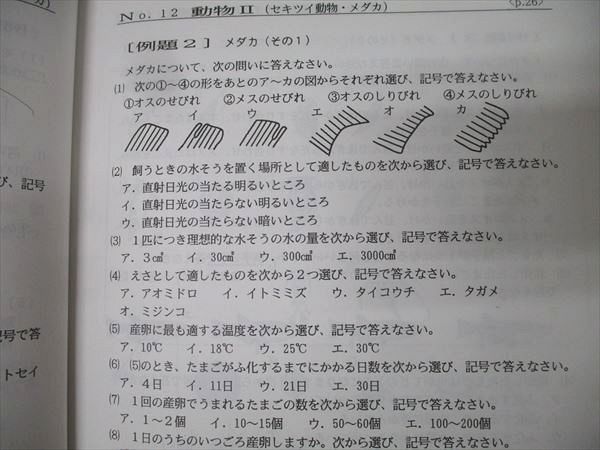 No. 12 動物Ⅱ (セキツイ動物・メダカ) <p.26>
[例題2] メダカ(その1)
メダカについて、次の問いに答えなさい。
(1) 次の①~④の形をあとのア~カの図からそれぞれ選び、記号で答えなさい。
①オスのせびれ ②メスのせびれ ③オスのしりびれ ④メスのしりびれ
ア イ ウ エ オ カ
(2) 飼うときの水そうを置く場所として適したものを次から選び、記号で答えなさい。
ア. 直射日光の当たる明るいところ
イ. 直射日光の当たらない明るいところ
ウ. 直射日光の当たらない暗いところ
(3) 1匹につき理想的な水そうの水の量を次から選び、記号で答えなさい。
ア. 3㎤ イ. 30㎤ ウ. 300㎤ エ. 3000㎤
(4) えさとして適したものを次から2つ選び、記号で答えなさい。
ア. アオミドロ イ. イトミミズ ウ. タイコウチ エ. タガメ
オ. ミジンコ
(5) 産卵に最も適する温度を次から選び、記号で答えなさい。
ア. 10℃ イ. 18℃ ウ. 25℃ エ. 30℃
(6) (5)のとき、たまごがふ化するまでにかかる日数を次から選び、記号で答えなさい。
ア. 4日 イ. 11日 ウ. 21日 エ. 30日
(7) 1回の産卵でうまれるたまごの数を次から選び、記号で答えなさい。
ア. 1~2個 イ. 10~15個 ウ. 50~60個 エ. 100~200個
(8) 1日のうちのいつごろ産卵しますか。次から選び、記号で答えなさい。
び、記号
記号で答
トセイ